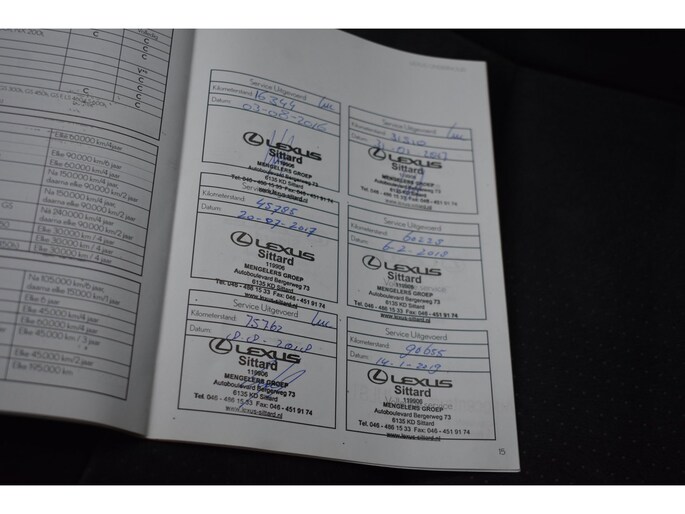 Elke 60.000 km/4 jaar
Elke 90.000 km/6 jaar
Elke 60.000 km/4 jaar
Na 150.000 km/4 jaar,
daarna elke 90.000 km/2 jaar
Na 240.000 km/4 jaar
daarna elke 90.000 km/2 jaar
Elke 30.000 km/2 jaar
Elke 30.000 km / 4 jaar
Elke 30.000 km / 4 jaar
Na 105.000 km/6 jaar,
daarna elke 150.000 km/1 jaar
Elke 6 jaar
Elke 45.000 km/4 jaar
Elke 60.000 km/4 jaar
Elke 45.000 km / 3 jaar
Elke 45.000 km/2 jaar
Elke 195.000 km
Service Uitgevoerd
Kilometerstand: 16344
Datum: 03-08-2016
LEXUS
Sittard
119906
MENGELERS GROEP
Autoboulevard Bergerweg 73
6135 KD Sittard
Tel. 046 - 486 15 33 Fax: 046 - 451 91 74
www.lexus-sittard.nl
Service Uitgevoerd
Kilometerstand: 31510
Datum:
LEXUS
Sittard
119906
MENGELERS GROEP
Autoboulevard Bergerweg 73
6135 KD Sittard
Tel. 046 - 486 15 33 Fax: 046 - 451 91 74
www.lexus-sittard.nl
Service
Kilometerstand: 45785
Datum: 20-07-2017
LEXUS
Sittard
119906
MENGELERS GROEP
Autoboulevard Bergerweg 73
6135 KD Sittard
Tel. 046 - 486 15 33 Fax: 046 - 451 91 74
www.lexus-sittard.nl
Service Uitgevoerd
Kilometerstand: 60228
Datum: 6-2-2018
LEXUS
Sittard
119906
MENGELERS GROEP
Autoboulevard Bergerweg 73
6135 KD Sittard
Tel. 046 - 486 15 33 Fax: 046 - 451 91 74
www.lexus-sittard.nl
Service Uitgevoerd
Kilometerstand: 75762
Datum: 8-8-2018
LEXUS
Sittard
119906
MENGELERS GROEP
Autoboulevard Bergerweg 73
6135 KD Sittard
Tel. 046 - 486 15 33 Fax: 046 - 451 91 74
www.lexus-sittard.nl
Service Uitgevoerd
Kilometerstand: 90655
Datum: 14-1-2019
LEXUS
Sittard
119906
MENGELERS GROEP
Autoboulevard Bergerweg 73
6135 KD Sittard
Tel. 046 - 486 15 33 Fax: 046 - 451 91 74
www.lexus-sittard.nl
15